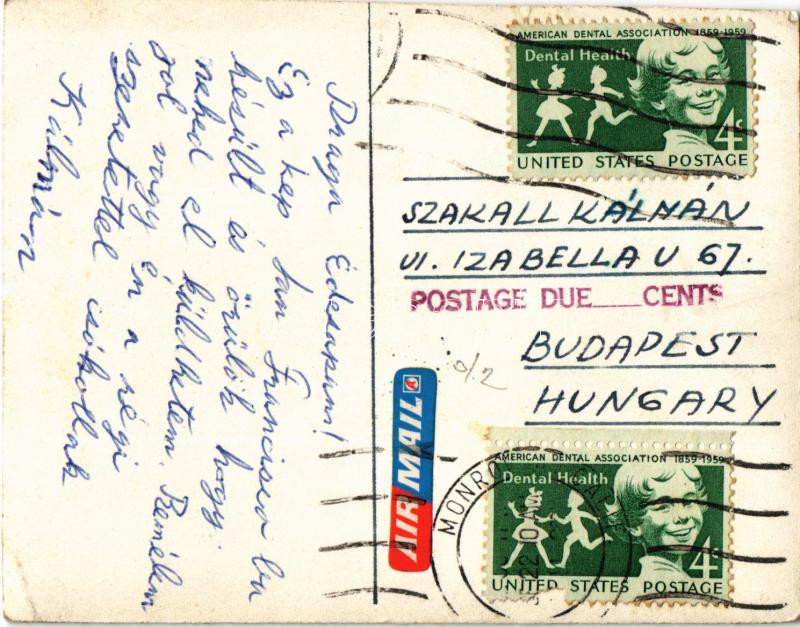 Draga Édesapám!
Ez a kép San Francisco bu
késült és örülök hogy
neked el küldhetem. Remélem
jol vagy én a régi
szeretettel csókollak
Kálmán
AMERICAN DENTAL ASSOCIATION 1859-1959
Dental Health
4c
UNITED STATES POSTAGE
SZAKALL KÁLMÁN
VI. IZABELLA U 67.
POSTAGE DUE CENTS
BUDAPEST
HUNGARY
o/2
AIR MAIL
AMERICAN DENTAL ASSOCIATION 1859-1959
Dental Health
4c
UNITED STATES POSTAGE